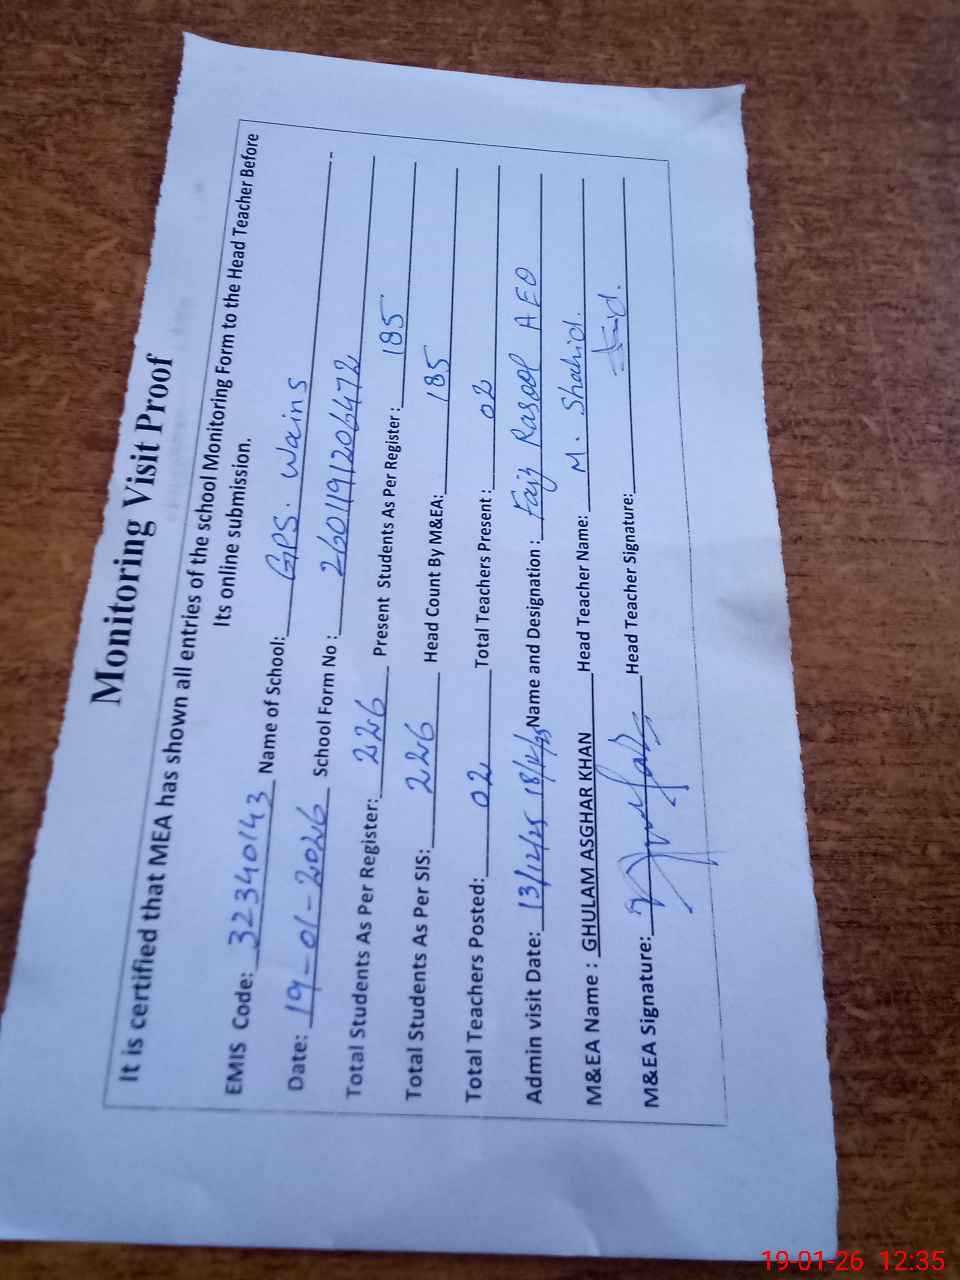 Monitoring Visit Proof
It is certified that MEA has shown all entries of the school Monitoring Form to the Head Teacher Before
Its online submission.
EMIS Code: 32340143 Name of School: GPS. Wains
Date: 19-01-2026 School Form No: 2601191206472
Total Students As Per Register: 226 Present Students As Per Register: 185
Total Students As Per SIS: 226 Head Count By M&EA: 185
Total Teachers Posted: 02 Total Teachers Present: 02
Admin visit Date: 13/12/25 18/12/25 Name and Designation: Faiz Rasool AEO
M&EA Name: GHULAM ASGHAR KHAN Head Teacher Name: M. Shahid.
M&EA Signature: Head Teacher Signature:
19-01-26 12:35